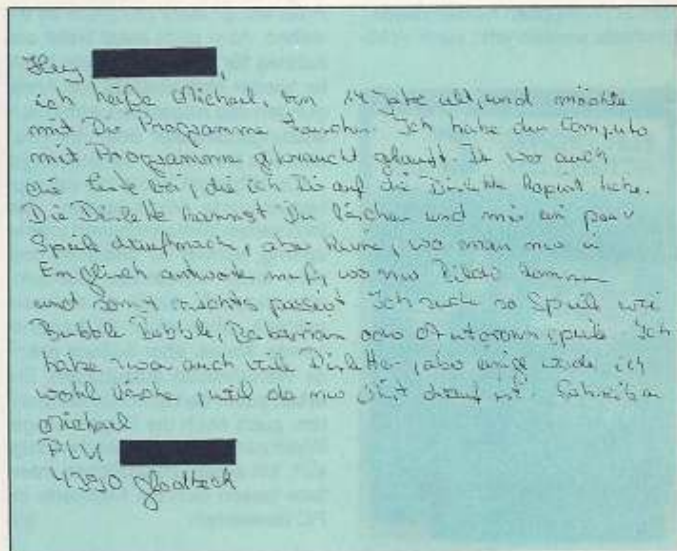 Hey
ich heiße Michael, bin 14 Jahre alt, und möchte
mit Dir Programme tauschen. Ich habe den Computer
mit Programme gebraucht gekauft. Da war auch
die Liste bei, die ich Dir auf die Diskette kopiert habe.
Die Diskette kannst Du löschen und mir ein paar
Spiele draufmachen, aber keine, wo man nur in
Englisch antworten muß, wo nur Bilder kommen
und sonst nichts passiert. Ich suche so Spiele wie
Bubble Bobble, Barbarian oder Ich
habe zwar auch viele Disketten, aber einige werde ich
wohl löschen, weil da nur drauf ist.
Michael
PLK
4390 Gladbeck